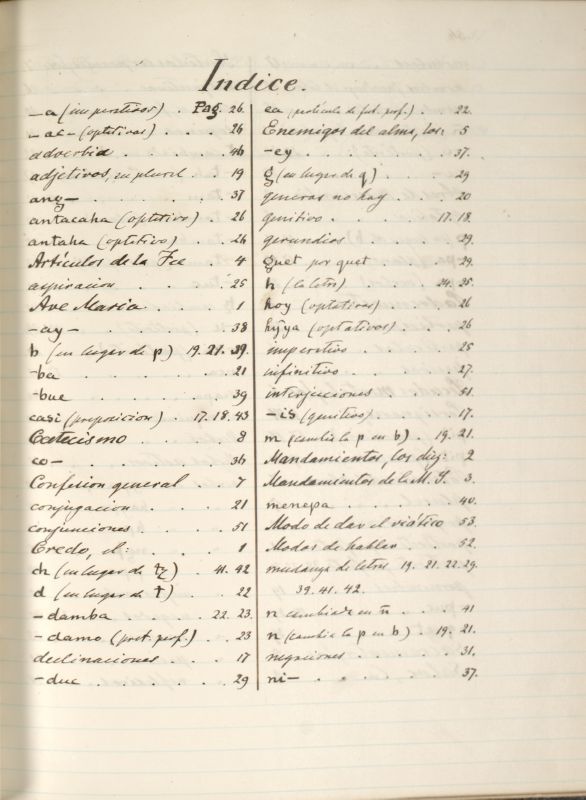 Indice.
-a (imperativos) . Pag. 26.
-ac- (optativos) . . . 26
adverbio . . . . . 46
adjetivos, en plural . . 19
ang- . . . . . . . 37
antacaha (optativo) . 26
antaha (optativo) . . 26
Artículos de la Fee . . 4
aspiracion . . . . . 25
Ave Maria . . . . . 1
-ay- . . . . . . . 38
b (en lugar de p) 19. 21. 39.
-ba . . . . . . . 21
-bue . . . . . . . 39
casi (preposicion) . 17. 18. 43
Catecismo . . . . . 8
co- . . . . . . . 36
Confesion general . . 7
conjugacion . . . . 21
conjunciones . . . . 51
Credo, el: . . . . . 1
ch (en lugar de tz) . . 41. 42
d (en lugar de t) . . . 22
-damba . . . . 22. 23.
-damo (pret. perf.) . . 23
declinaciones . . . . 17
-duc . . . . . . . 29
ea (particula de fut. perf.) . . 22.
Enemigos del alma, los: 5
-ey . . . . . . . 37.
g (en lugar de q) . . . 29
generos no hay . . . 20
genitivo . . . . . 17. 18.
gerundios . . . . . 29.
guet por quet . . . . 29.
h (la letra) . . . . 24. 25.
hoy (optativos) . . . 26
hÿya (optativos) . . . 26
imperativo . . . . . 25
infinitivo . . . . . 27.
interjecciones . . . . 51.
-is (genitivo) . . . . 17.
m (cambia la p en b) . 19. 21.
Mandamientos, los diez: 2
Mandamientos de la M. Y. 3.
menepa . . . . . . 40.
Modo de dar el viático 53.
Modos de hablar . . . 52.
mudanza de letras 19. 21. 22. 29.
39. 41. 42.
n cambiada en ñ . . . 41
n (cambia la p en b) . 19. 21.
negaciones . . . . . 31.
ni- . . . . . . . 37.